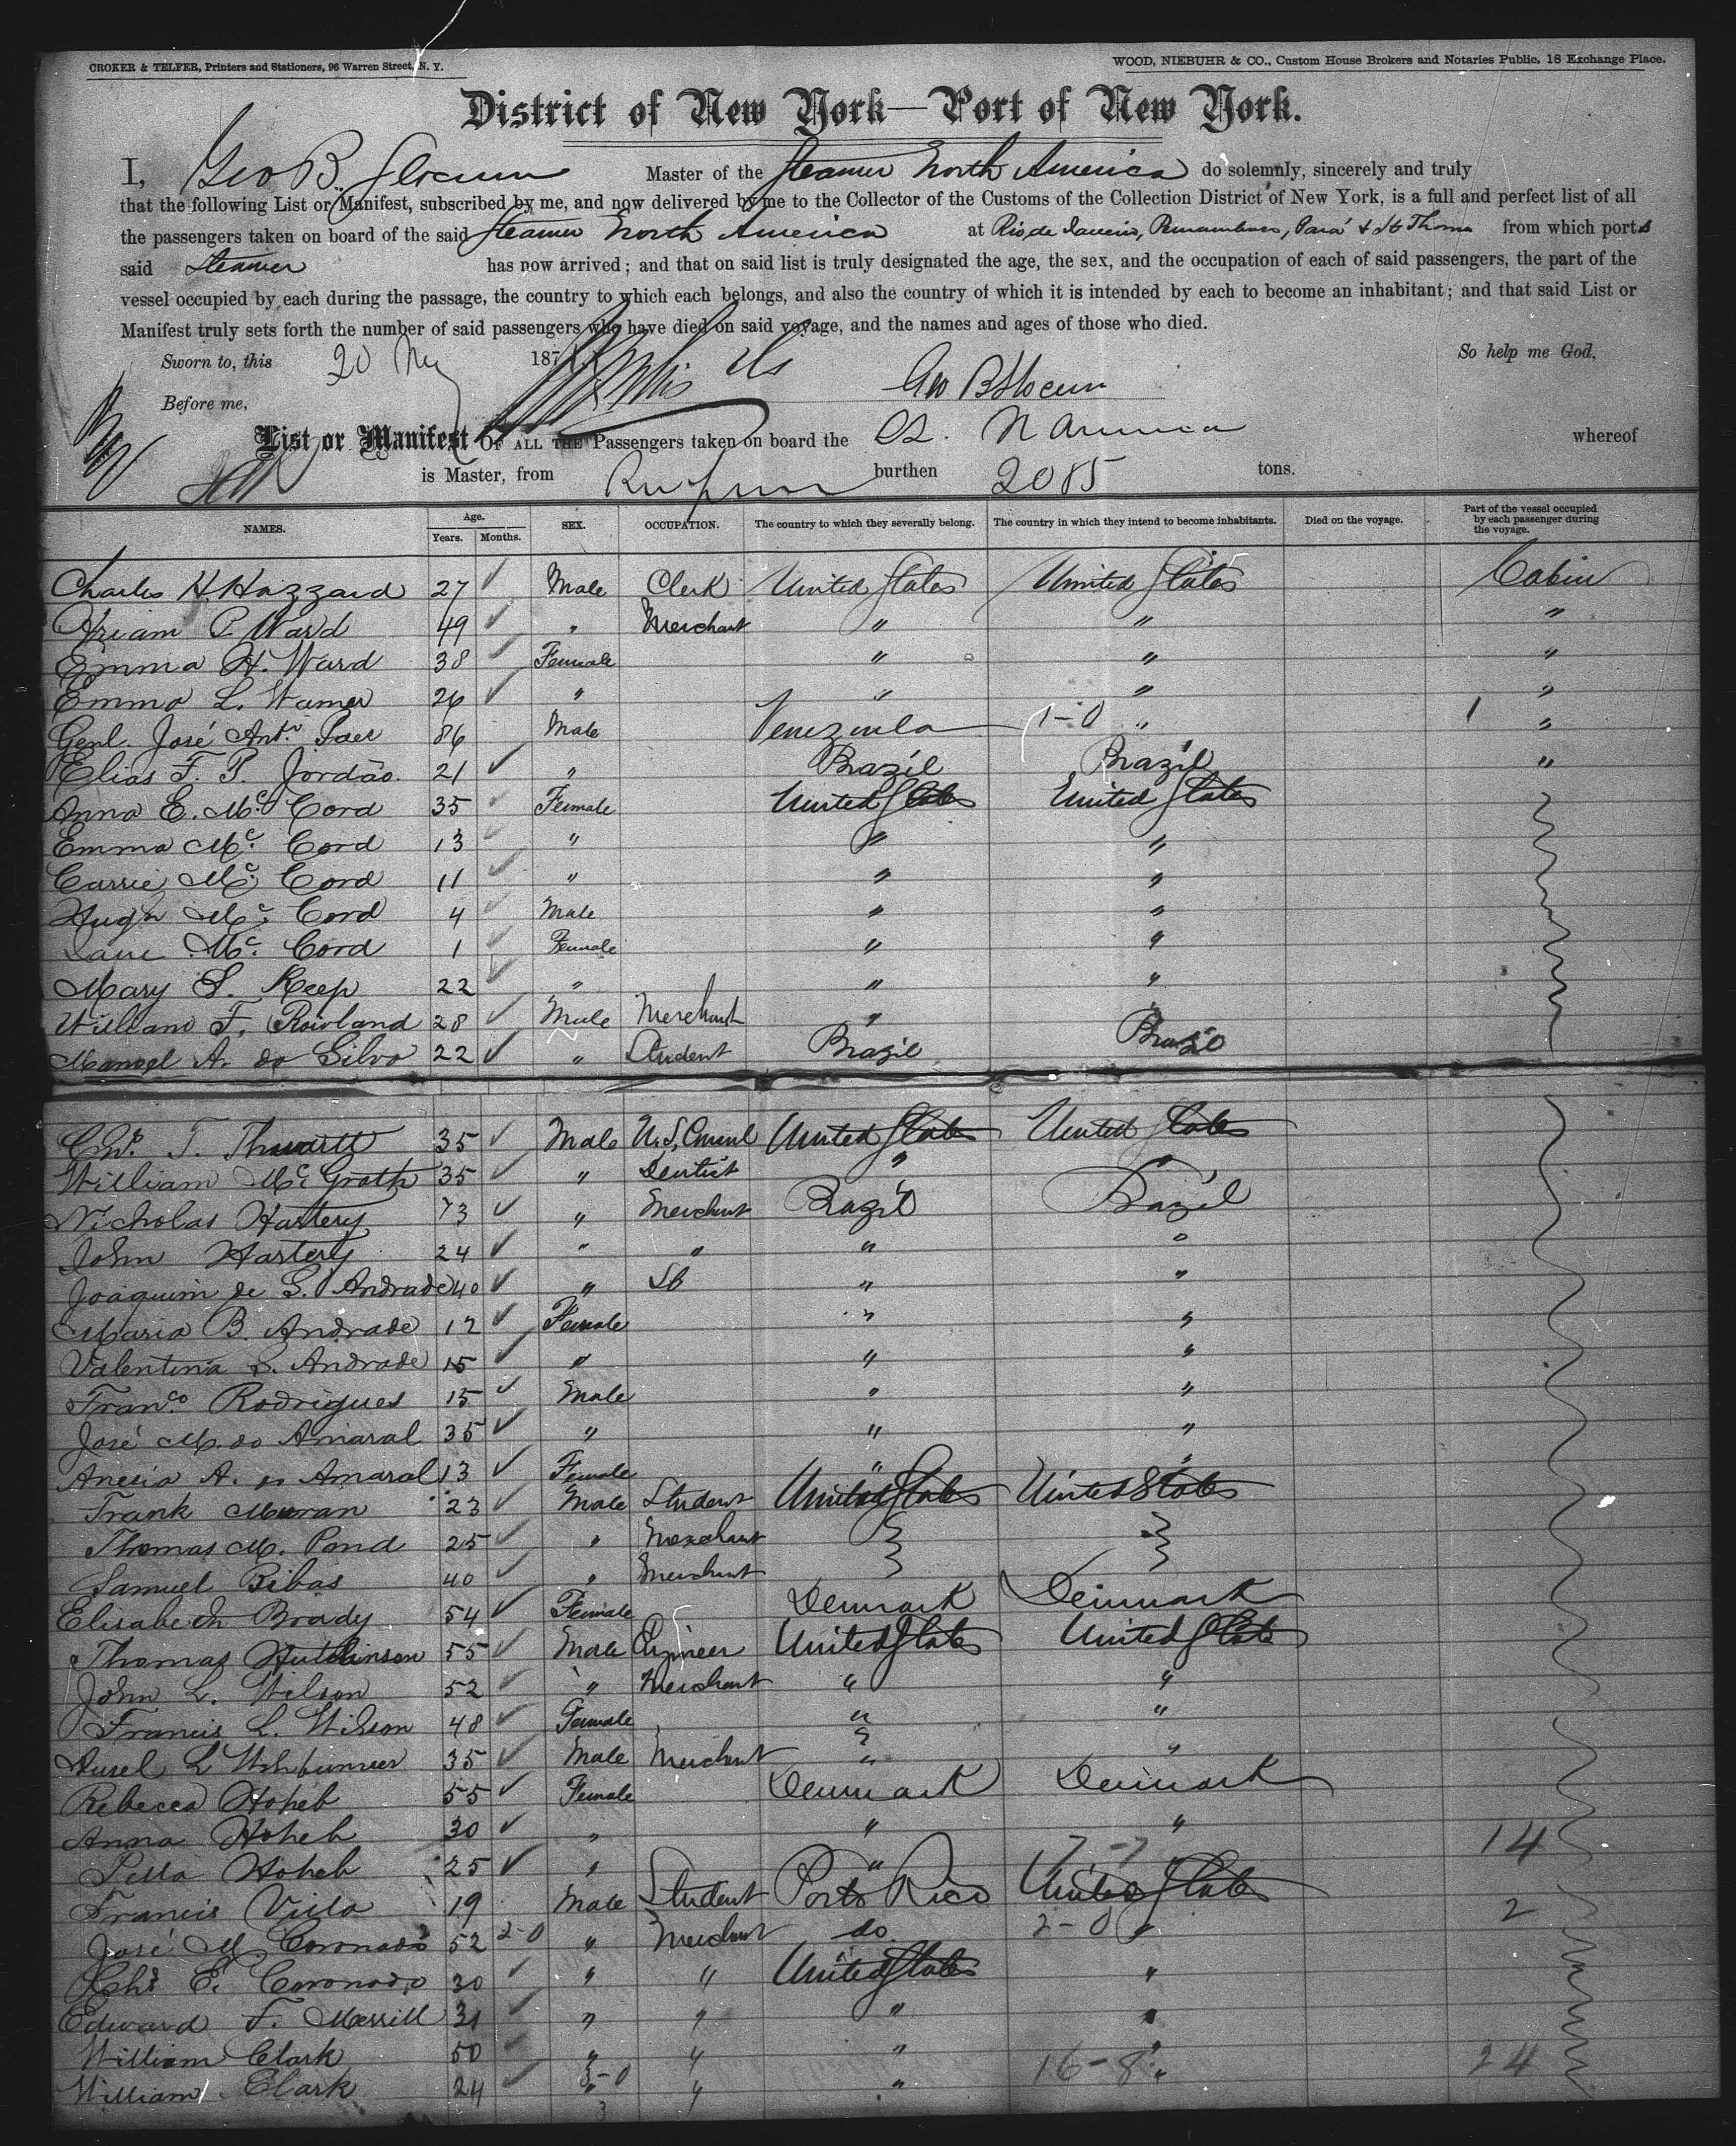 CROKER & TELFER, Printers and Stationers, 96 Warren Street, N. Y.
WOOD, NIEBUHR & CO., Custom House Brokers and Notaries Public, 18 Exchange Place.
District of New York—Port of New York.
I, Geo B. Slocum Master of the Steamer North America do solemnly, sincerely and truly
that the following List or Manifest, subscribed by me, and now delivered by me to the Collector of the Customs of the Collection District of New York, is a full and perfect list of all
the passengers taken on board of the said Steamer North America at Rio de Janeiro, Pernambuco, Pará & St Thomas from which ports
said Steamer has now arrived; and that on said list is truly designated the age, the sex, and the occupation of each of said passengers, the part of the
vessel occupied by each during the passage, the country to which each belongs, and also the country of which it is intended by each to become an inhabitant; and that said List or
Manifest truly sets forth the number of said passengers who have died on said voyage, and the names and ages of those who died.
Sworn to, this 20 187 So help me God,
Before me, Geo B Slocum
List or Manifest OF ALL THE Passengers taken on board the whereof
is Master, from burthen 2085 tons.
NAMES. Age. Years. Months. SEX. OCCUPATION. The country to which they severally belong. The country in which they intend to become inhabitants. Died on the voyage. Part of the vessel occupied by each passenger during the voyage.
Charles H. Hazzard 27 Male Clerk United States United States Cabin
Hriam P. Ward 49 " Merchant " " "
Emma H. Ward 38 Female " " "
Emma L. 26 " " " "
Genl. José Anto. Paez 86 Male Venezuela 1-0 " 1 "
Elias F. P. Jordão 21 " Brazil Brazil "
Anna E. Mc Cord 35 Female United States United States
Emma Mc Cord 13 " " "
Carrie Mc Cord 11 " " "
Hugh Mc Cord 4 Male " "
Mc Cord 1 Female " "
Mary S. Keep 22 " " "
William F. Rowland 28 Male Merchant " "
Manoel A. da Silva 22 " Student Brazil Brazil
T. 35 Male U.S. United States United States
William McGrath 35 " Dentist " "
Nicholas Hartery 73 " Merchant Brazil Brazil
John Hartery 24 " " " "
Joaquim de S. Andrade 40 " " "
Maria B. Andrade 12 Female " "
Valentina S. Andrade 15 " " "
Franco Rodrigues 15 Male " "
José M. do Amaral 35 " " "
Anesia A. do Amaral 13 Female " "
Frank Moran 23 Male Student United States United States
Thomas M. Pond 25 " Merchant
Samuel Bibas 40 " Merchant
Elisabeth Brady 54 Female Denmark Denmark
Thomas Hutchinson 55 Male Engineer United States United States
John L. Wilson 52 " Merchant " "
Francis L. Wilson 48 Female " "
35 Male Merchant " "
Rebecca Hoheb 55 Female Denmark Denmark
Anna Hoheb 30 " " " 14
Hoheb 25 " " 7-7
Francis 19 Male Student Porto Rico United States 2
José M. Coronado 52 2-0 " Merchant do. 2-0 "
E. Coronado 30 " " United States "
Edward F. Merrill 31 " " " "
William Clark 50 " " " "
William Clark 24 3-0 " " " 16-8 " 24
3